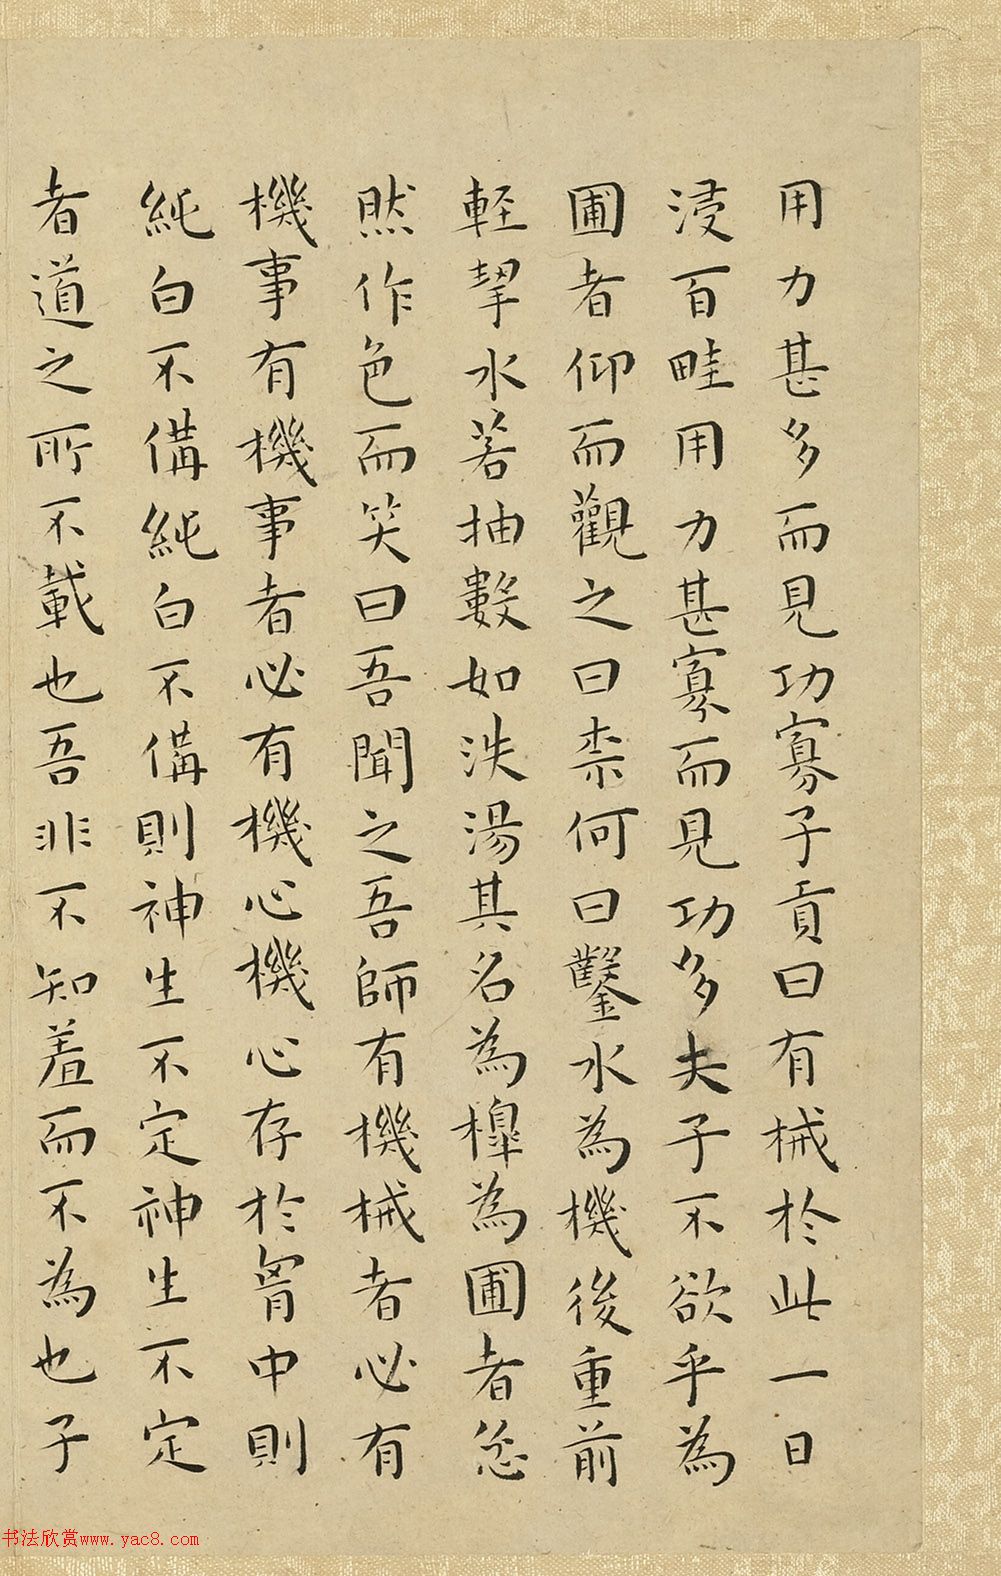 用力甚多而見功寡子貢曰有械於此一日
浸百畦用力甚寡而見功多夫子不欲乎為
圃者仰而觀之曰柰何曰鑿水為機後重前
輕挈水若抽數如泆湯其名為槹為圃者忿
然作色而笑曰吾聞之吾師有機械者必有
機事有機事者必有機心機心存於胷中則
純白不備純白不備則神生不定神生不定
者道之所不載也吾非不知羞而不為也子
书法欣赏www.yac8.com